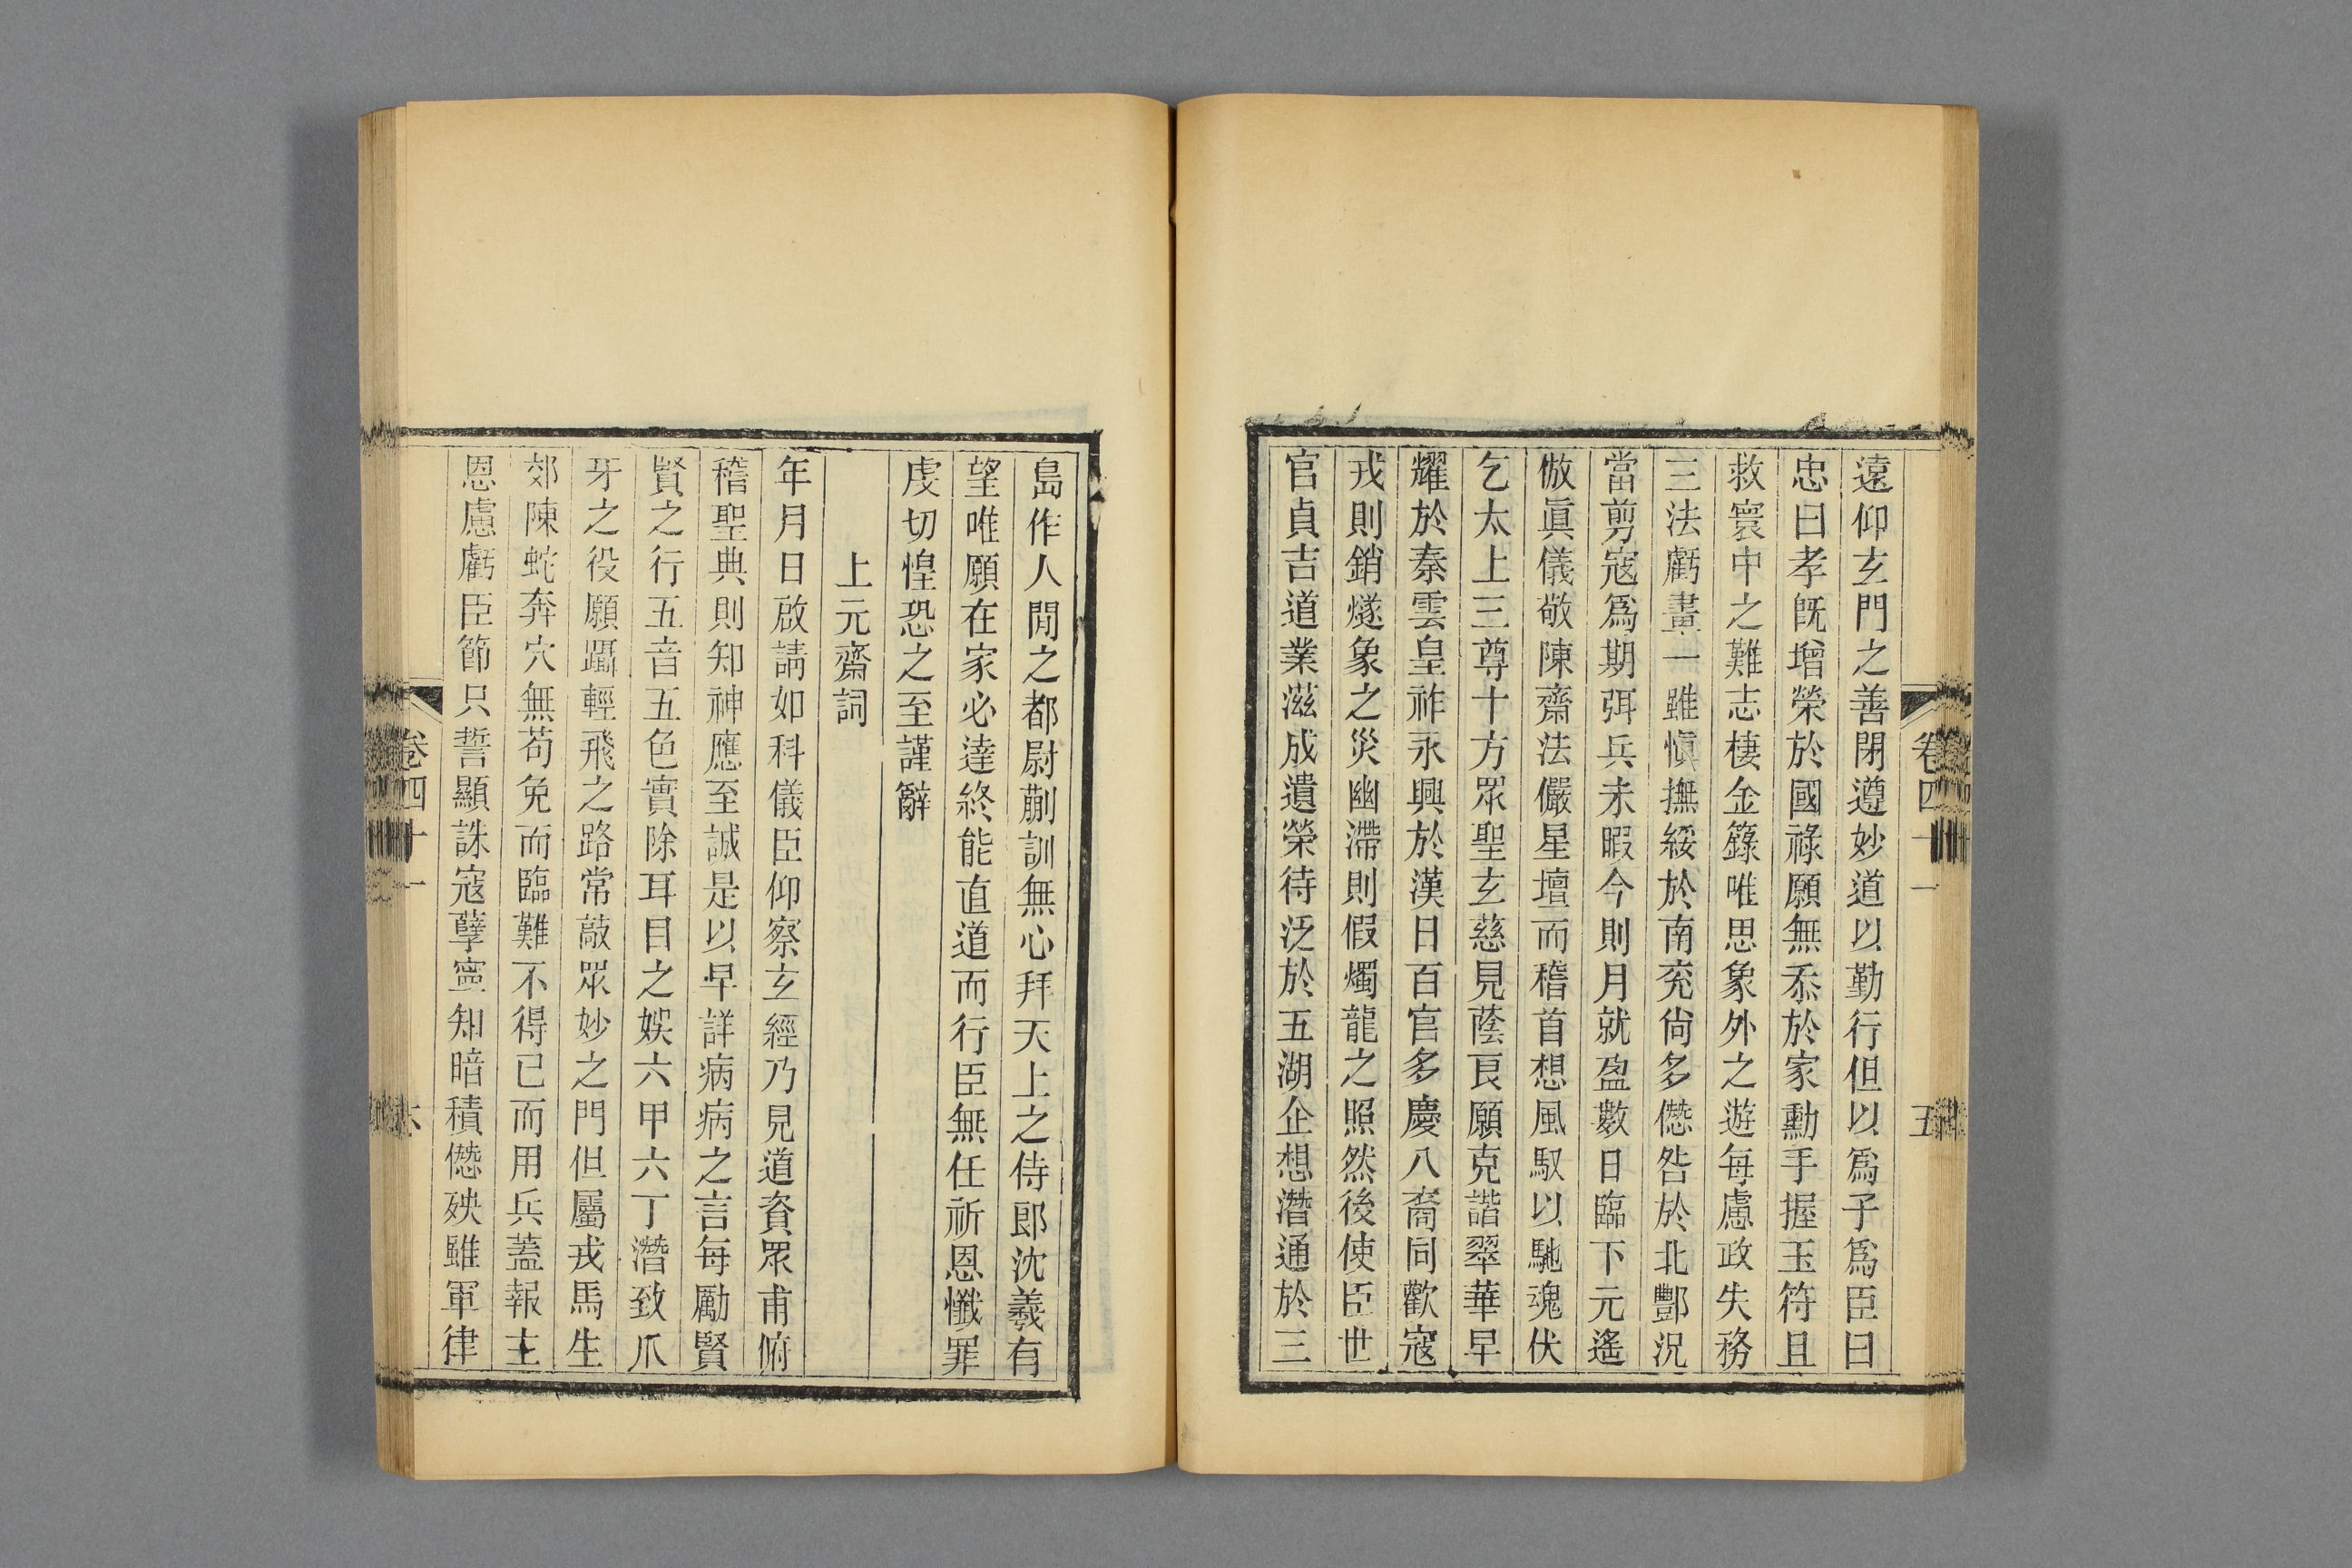 卷四十一
五
遠仰玄門之善閉遵妙道以勤行但以爲子爲臣曰
忠曰孝旣增榮於國祿願無忝於家勳手握玉符且
救寰中之難志棲金籙唯思象外之遊每慮政失務
三法虧畫一雖愼撫綏於南兖尙多僽咎於北酆況
當剪寇爲期弭兵未暇今則月就盈數日臨下元遙
倣眞儀敬陳齋法儼星壇而稽首想風馭以馳魂伏
乞太上三尊十方眾聖玄慈見蔭良願克諧翠華早
耀於秦雲皇祚永興於漢日百官多慶八裔同歡寇
戎則銷燧象之災幽滯則假燭龍之照然後使臣世
官貞吉道業滋成遺榮待泛於五湖企想潛通於三
島作人閒之都尉蒯訓無心拜天上之侍郎沈羲有
望唯願在家必達終能直道而行臣無任祈恩懺罪
虔切惶恐之至謹辭
上元齋詞
年月日啟請如科儀臣仰察玄經乃見道資眾甫俯
稽聖典則知神應至誠是以早詳病病之言每勵賢
賢之行五音五色實除耳目之娛六甲六丁潛致爪
牙之役願躡輕飛之路常敲眾妙之門但屬戎馬生
郊陳蛇奔穴無苟免而臨難不得已而用兵蓋報主
恩慮虧臣節只誓顯誅寇孽寧知暗積僽殃雖軍律
卷四十一
六